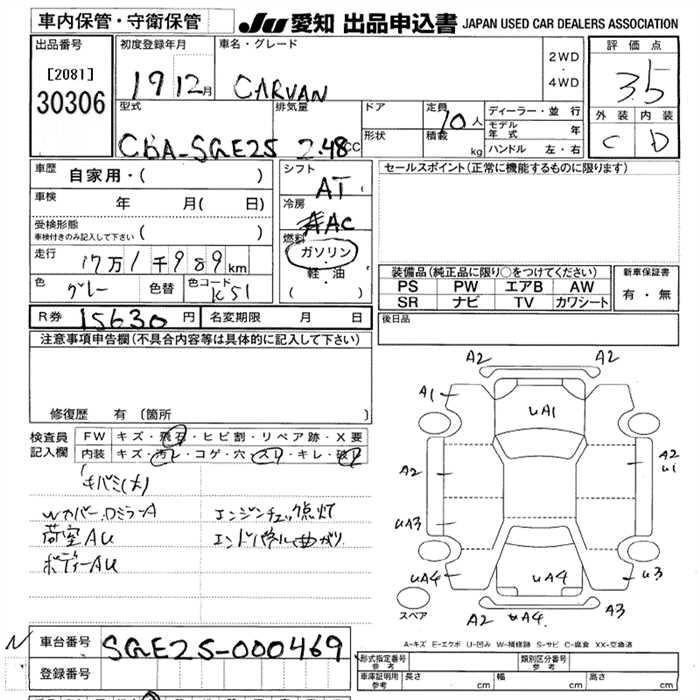 車内保管・守衛保管
JU 愛知 出品申込書 JAPAN USED CAR DEALERS ASSOCIATION
出品番号
[2081]
30306
初度登録年月
19 12月
車名・グレード
CARVAN
2WD
・
4WD
評価点
3.5
外装 内装
C D
型式
CBA-SGE25
排気量
2.48cc
ドア
形状
定員
10人
積義
kg
ディーラー・並行
モデル年式 年
ハンドル 左・右
車歴
自家用・( )
シフト
AT (
セールスポイント(正常に機能するものに限ります)
車検
年 月( 日)
冷房
AC
受検形態
車検付きのみ記入して下さい ( )
燃料
ガソリン
・
軽・油
( )
走行
17万1千989km
色
グレー
色替
色コード
K51
装備品(純正品に限り○をつけてください)
PS PW エアB AW
SR ナビ TV カワシート
新車保証書
有・無
R券 15630円
名変期限 月 日
後日品
注意事項申告欄(不具合内容等は具体的に記入して下さい)
修復歴 有 〔箇所 〕
検査員
記入欄
FW キズ・飛石・ヒビ割・リペア跡・X要
内装 キズ・汚レ・コゲ・穴・スレ・キレ・破レ
キバミ(大)
Wカバー、ロミラーA
荷室AU
ボディーAU
エンジンチェック点灯
エンドパネル曲がり
A2 A2
A1
UA1
A2
A2
U1
UA3
UA4 UA4 U3
A2 UA4 A3
スペア
A-キズ E-エクボ U-凹み W-補修跡 S-サビ C-腐食 XX-交換済
車台番号
SGE25-000469
登録番号
形式指定番号
参考
類別区分番号
参考
車庫証明用
参考
長さ cm
幅 cm
高さ cm